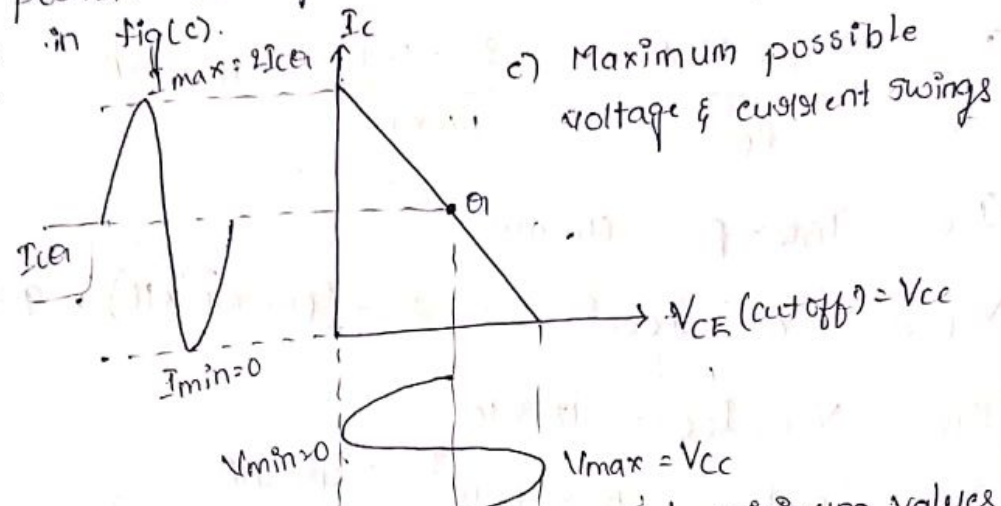 in fig(c).
Imax = 2ICQ
Ic
c) Maximum possible
voltage & current swings
Q
ICQ
VCE (cut off) = Vcc
Imin=0
Vmin=0
Vmax = Vcc
values